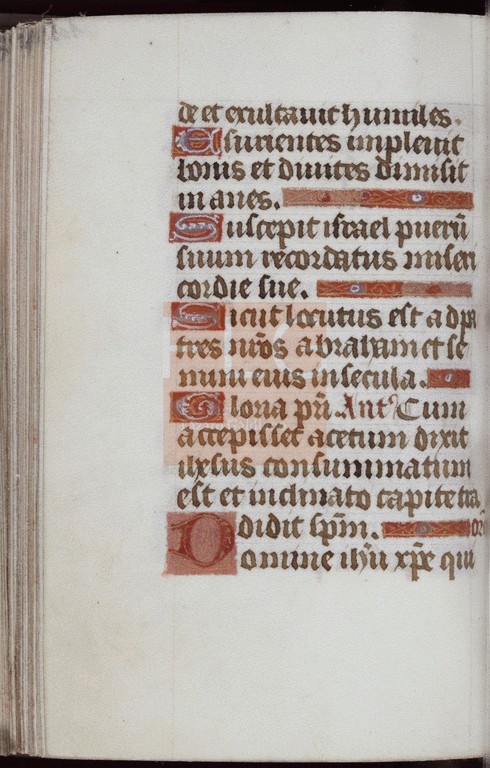 de et exultauit humiles.
Esurientes impleuit
bonis et diuites dimisit
inanes.
Suscepit israel puerū
suum recordatus miseri
cordie sue.
Sicut locutus est ad pa
tres nr̄os abraham et se
mini eius in secula.
Gloria pr̄i Ant' Cum
accepisset acetum dixit
ihesus consummatum
est et inclinato capite tra
didit sp̄m. or̄
Domine ihū xp̄e qui